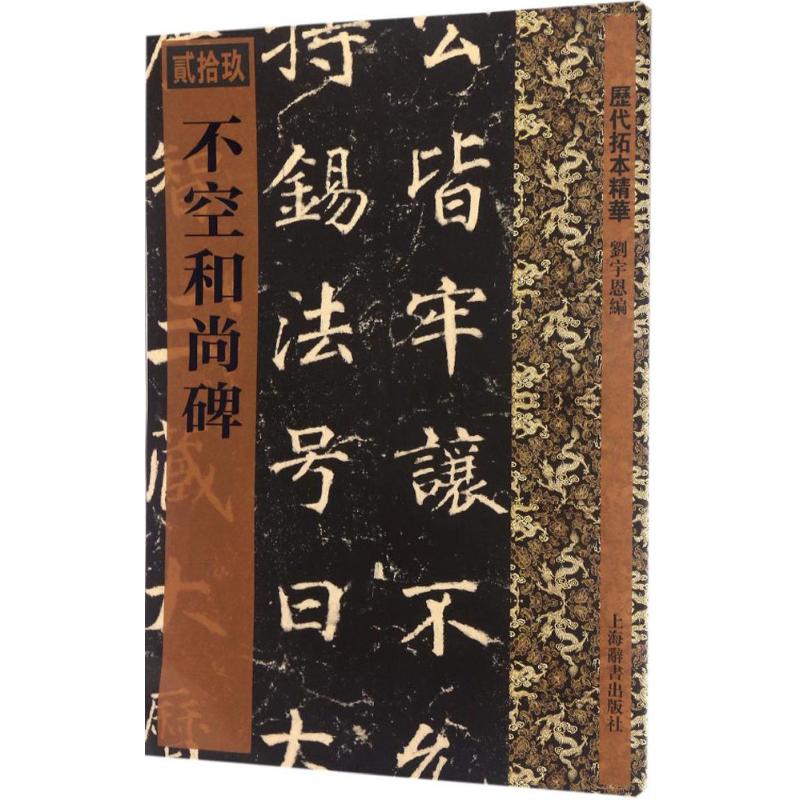 歷代拓本精華
劉宇恩編
上海辭書出版社
皆牢讓不允
特錫法号曰大
貳拾玖
不空和尚碑
智三藏大